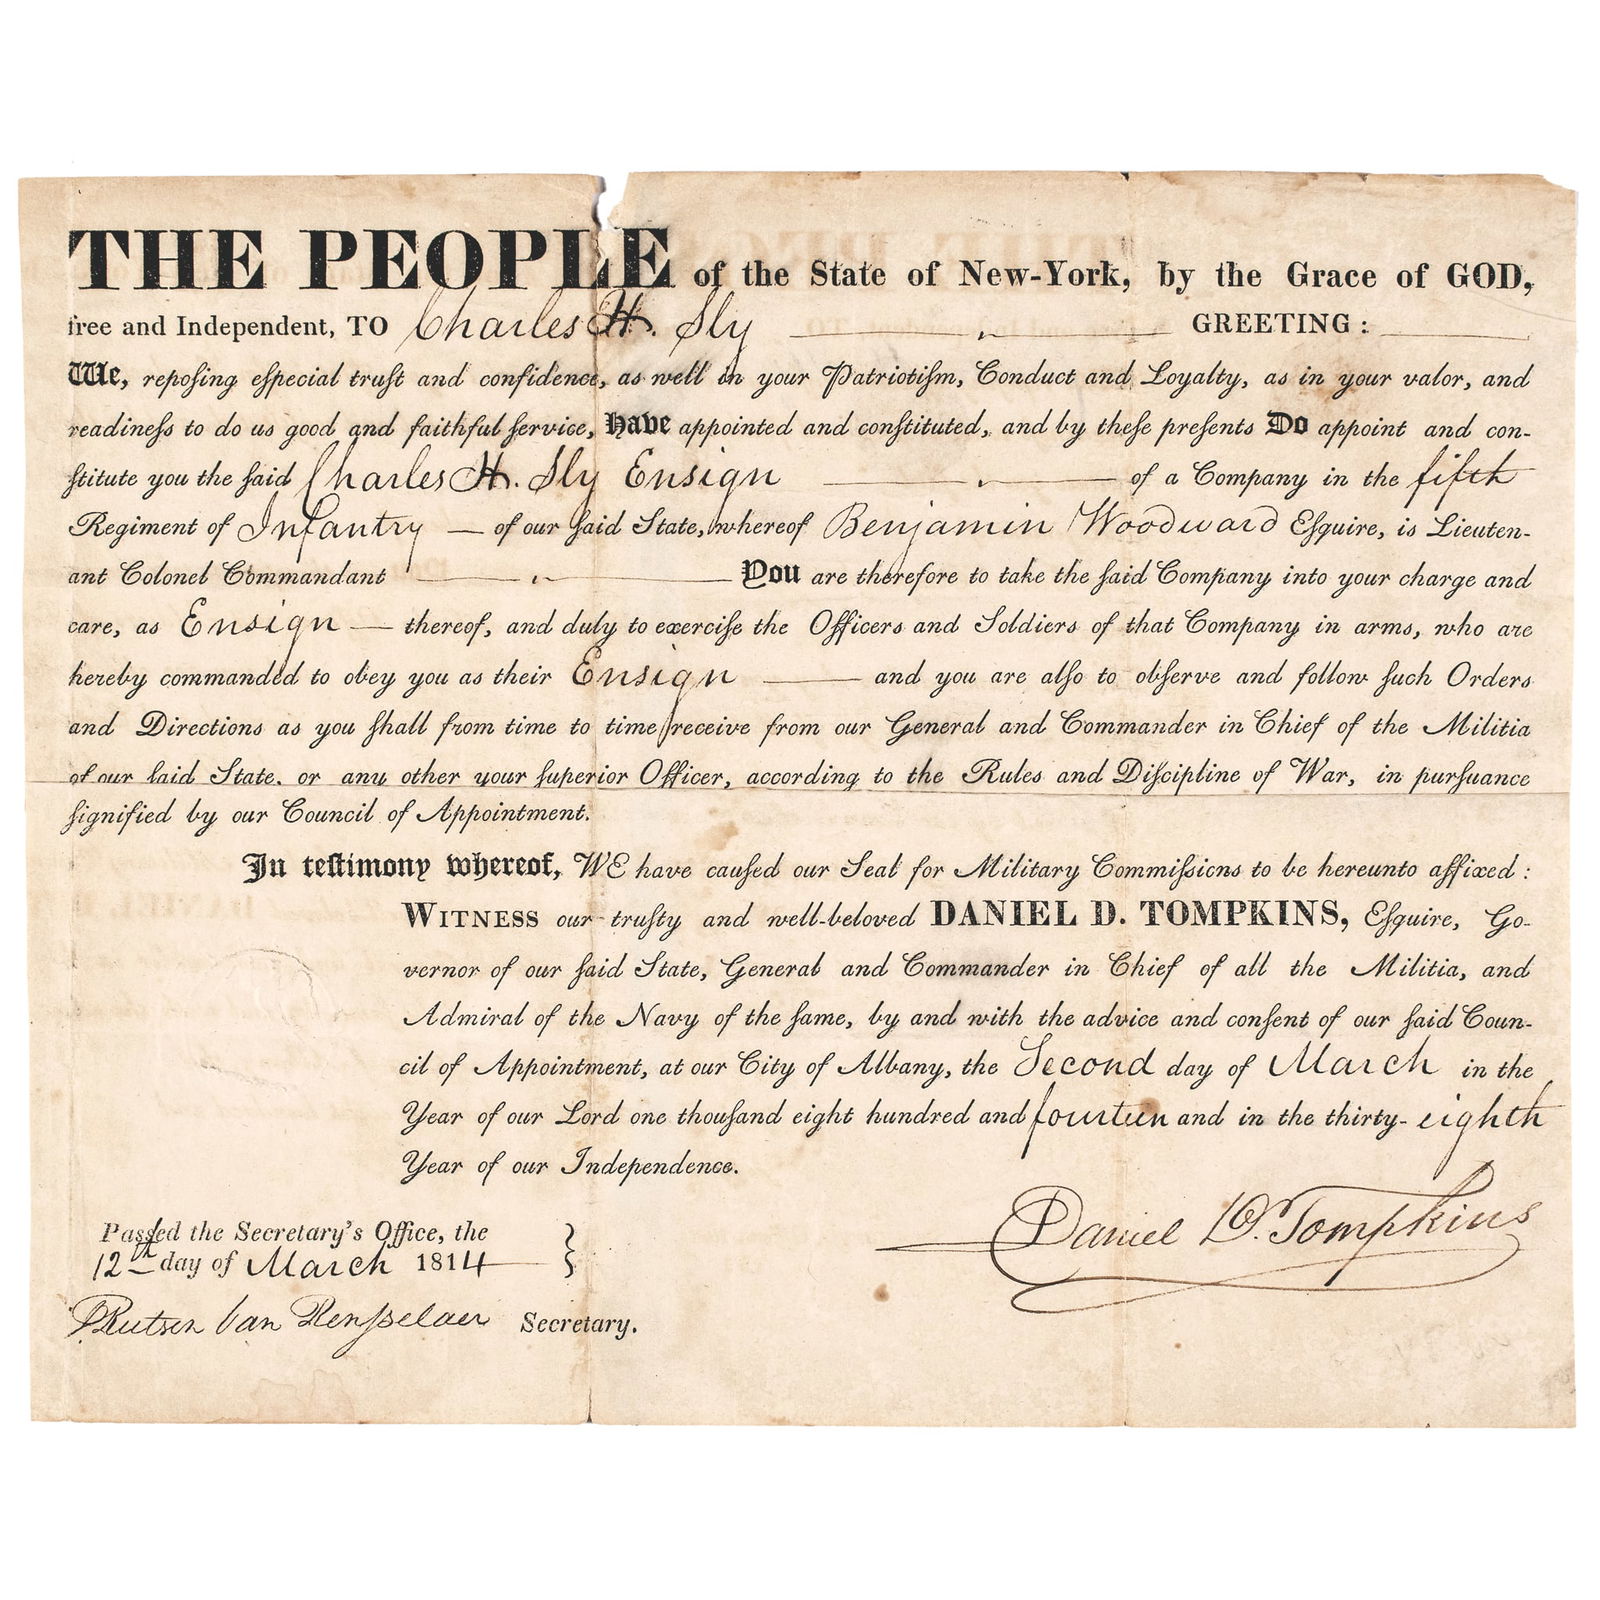 THE PEOPLE of the State of New-York, by the Grace of GOD,
free and Independent, TO Charles H. Sly GREETING:
We, repoſing eſpecial truſt and confidence, as well in your Patriotiſm, Conduct and Loyalty, as in your valor, and
readineſs to do us good and faithful ſervice, Have appointed and conſtituted, and by theſe preſents Do appoint and con-
ſtitute you the ſaid Charles H. Sly Ensign — of a Company in the fifth
Regiment of Infantry — of our ſaid State, whereof Benjamin Woodward Eſquire, is Lieuten-
ant Colonel Commandant — You are therefore to take the ſaid Company into your charge and
care, as Ensign — thereof, and duly to exerciſe the Officers and Soldiers of that Company in arms, who are
hereby commanded to obey you as their Ensign — and you are alſo to obſerve and follow ſuch Orders
and Directions as you ſhall from time to time receive from our General and Commander in Chief of the Militia
of our ſaid State, or any other your ſuperior Officer, according to the Rules and Diſcipline of War, in purſuance
ſignified by our Council of Appointment.
In teſtimony whereof, WE have cauſed our Seal for Military Commiſsions to be hereunto affixed:
WITNESS our truſty and well-beloved DANIEL D. TOMPKINS, Eſquire, Go-
vernor of our ſaid State, General and Commander in Chief of all the Militia, and
Admiral of the Navy of the ſame, by and with the advice and conſent of our ſaid Coun-
cil of Appointment, at our City of Albany, the Second day of March in the
Year of our Lord one thouſand eight hundred and fourteen and in the thirty-eighth
Year of our Independence.
Daniel D. Tompkins
Paſſed the Secretary's Office, the
12th day of March 1814
Rutsen Van Renſselaer Secretary.